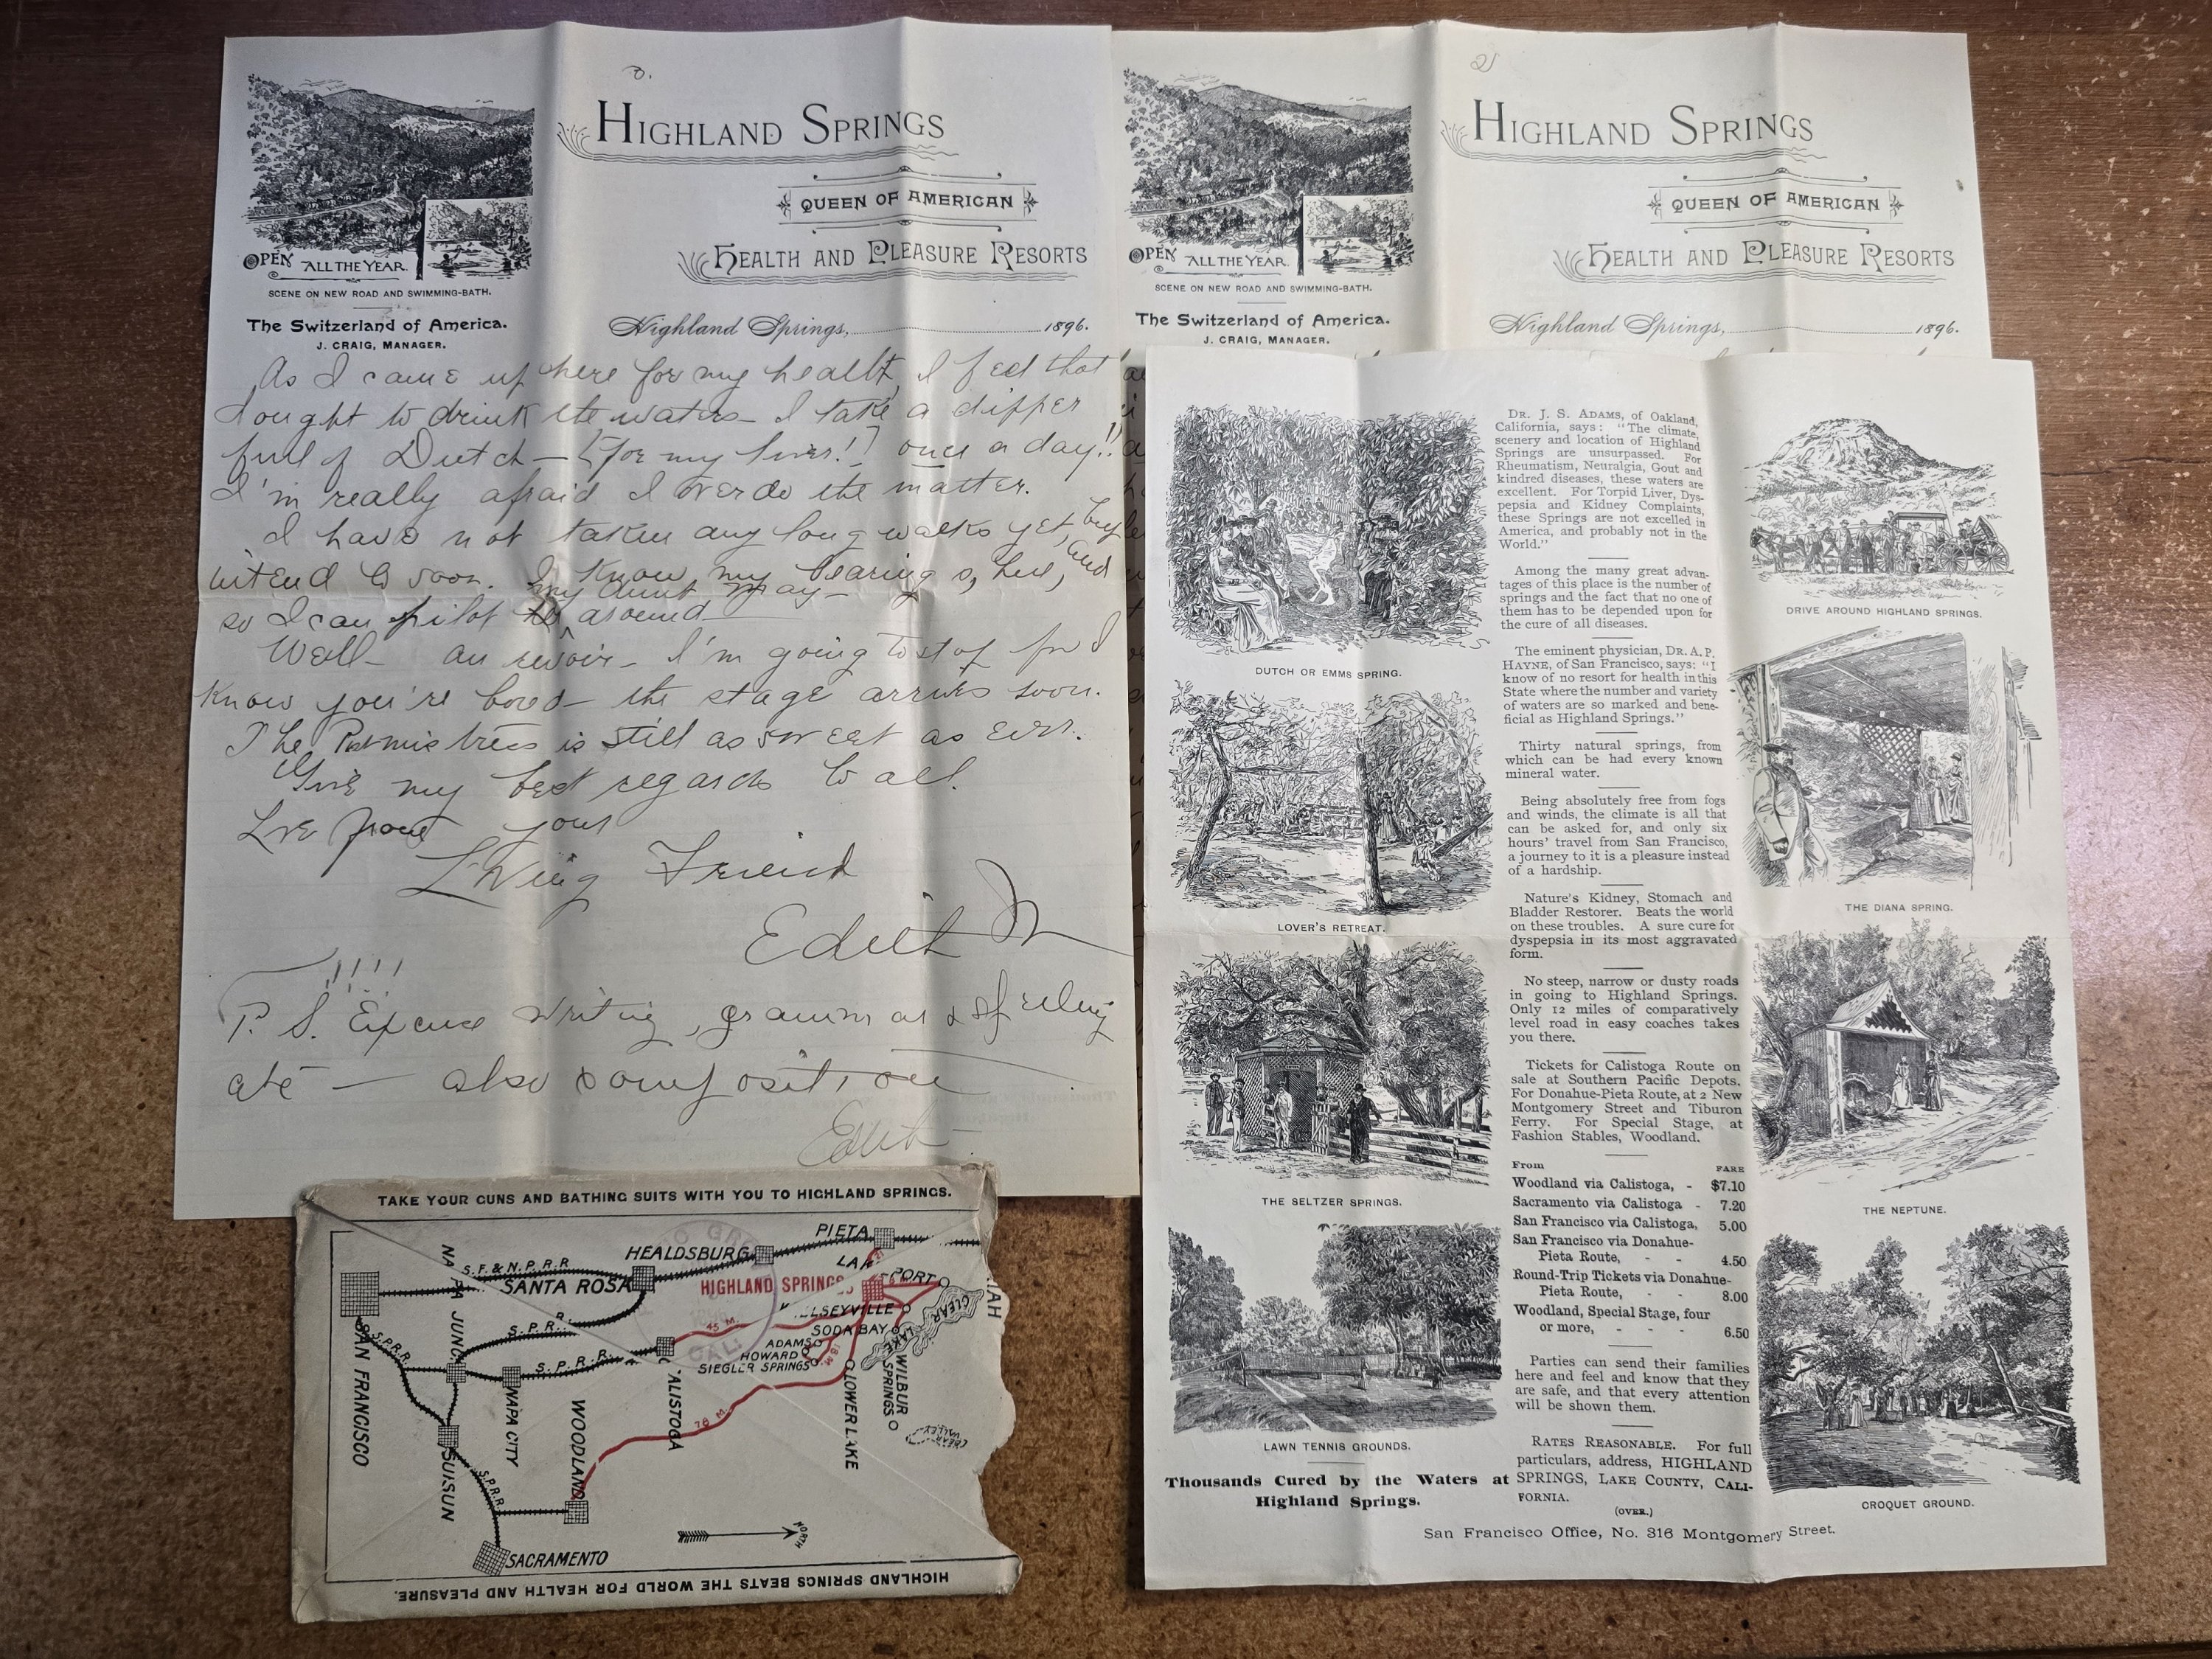 3.
HIGHLAND SPRINGS
QUEEN OF AMERICAN
HEALTH AND PLEASURE RESORTS
OPEN ALL THE YEAR.
SCENE ON NEW ROAD AND SWIMMING-BATH.
The Switzerland of America.
J. CRAIG, MANAGER.
Highland Springs, 1896.
As I came up here for my health, I feel that
I ought to drink the waters — I take a dipper
full of Dutch — [for my liver!] once a day!!
I'm really afraid I overdo the matter.
I have not taken any long walks yet, but
intend to soon. I know my bearings, here, and
my aunt May —
so I can pilot around —
Well — au revoir — I'm going to stop for I
know you're bored — the stage arrives soon.
The is still as sweet as ever.
Give my best regards to all.
Love from your
Loving Friend
Edith M
!!!!
P. S. Excuse writing, grammar & spelling
etc — also composition
Edith
2
HIGHLAND SPRINGS
QUEEN OF AMERICAN
HEALTH AND PLEASURE RESORTS
OPEN ALL THE YEAR.
SCENE ON NEW ROAD AND SWIMMING-BATH.
The Switzerland of America.
J. CRAIG, MANAGER.
Highland Springs, 1896.
DUTCH OR EMMS SPRING.
LOVER'S RETREAT.
THE SELTZER SPRINGS.
LAWN TENNIS GROUNDS.
Thousands Cured by the Waters at
Highland Springs.
DR. J. S. ADAMS, of Oakland,
California, says: "The climate,
scenery and location of Highland
Springs are unsurpassed. For
Rheumatism, Neuralgia, Gout and
kindred diseases, these waters are
excellent. For Torpid Liver, Dys-
pepsia and Kidney Complaints,
these Springs are not excelled in
America, and probably not in the
World."
Among the many great advan-
tages of this place is the number of
springs and the fact that no one of
them has to be depended upon for
the cure of all diseases.
The eminent physician, DR. A. P.
HAYNE, of San Francisco, says: "I
know of no resort for health in this
State where the number and variety
of waters are so marked and bene-
ficial as Highland Springs."
Thirty natural springs, from
which can be had every known
mineral water.
Being absolutely free from fogs
and winds, the climate is all that
can be asked for, and only six
hours' travel from San Francisco,
a journey to it is a pleasure instead
of a hardship.
Nature's Kidney, Stomach and
Bladder Restorer. Beats the world
on these troubles. A sure cure for
dyspepsia in its most aggravated
form.
No steep, narrow or dusty roads
in going to Highland Springs.
Only 12 miles of comparatively
level road in easy coaches takes
you there.
Tickets for Calistoga Route on
sale at Southern Pacific Depots.
For Donahue-Pieta Route, at 2 New
Montgomery Street and Tiburon
Ferry. For Special Stage, at
Fashion Stables, Woodland.
From FARE
Woodland via Calistoga, - $7.10
Sacramento via Calistoga - 7.20
San Francisco via Calistoga, 5.00
San Francisco via Donahue-
Pieta Route, - - 4.50
Round-Trip Tickets via Donahue-
Pieta Route, - - 8.00
Woodland, Special Stage, four
or more, - - - 6.50
Parties can send their families
here and feel and know that they
are safe, and that every attention
will be shown them.
RATES REASONABLE. For full
particulars, address, HIGHLAND
SPRINGS, LAKE COUNTY, CALI-
FORNIA.
(OVER.)
San Francisco Office, No. 316 Montgomery Street.
DRIVE AROUND HIGHLAND SPRINGS.
THE DIANA SPRING.
THE NEPTUNE.
CROQUET GROUND.
TAKE YOUR GUNS AND BATHING SUITS WITH YOU TO HIGHLAND SPRINGS.
PIETA
HEALDSBURG
S.F. & N.P.R.R
SANTA ROSA
HIGHLAND SPRINGS
LAKEPORT
KELSEYVILLE
CLEAR LAKE
SODA BAY
45 M.
ADAMS
HOWARD
SIEGLER SPRINGS
S.P.R.
S.P.R.R.
S.P.R.R.
SAN FRANCISCO
NAPA JUNC
NAPA CITY
CALISTOGA
LOWER LAKE
WILBUR SPRINGS
BEAR VALLEY
WOODLAND
78 M.
SUISUN
S.P.R.R
SACRAMENTO
NORTH
HIGHLAND SPRINGS BEATS THE WORLD FOR HEALTH AND PLEASURE.